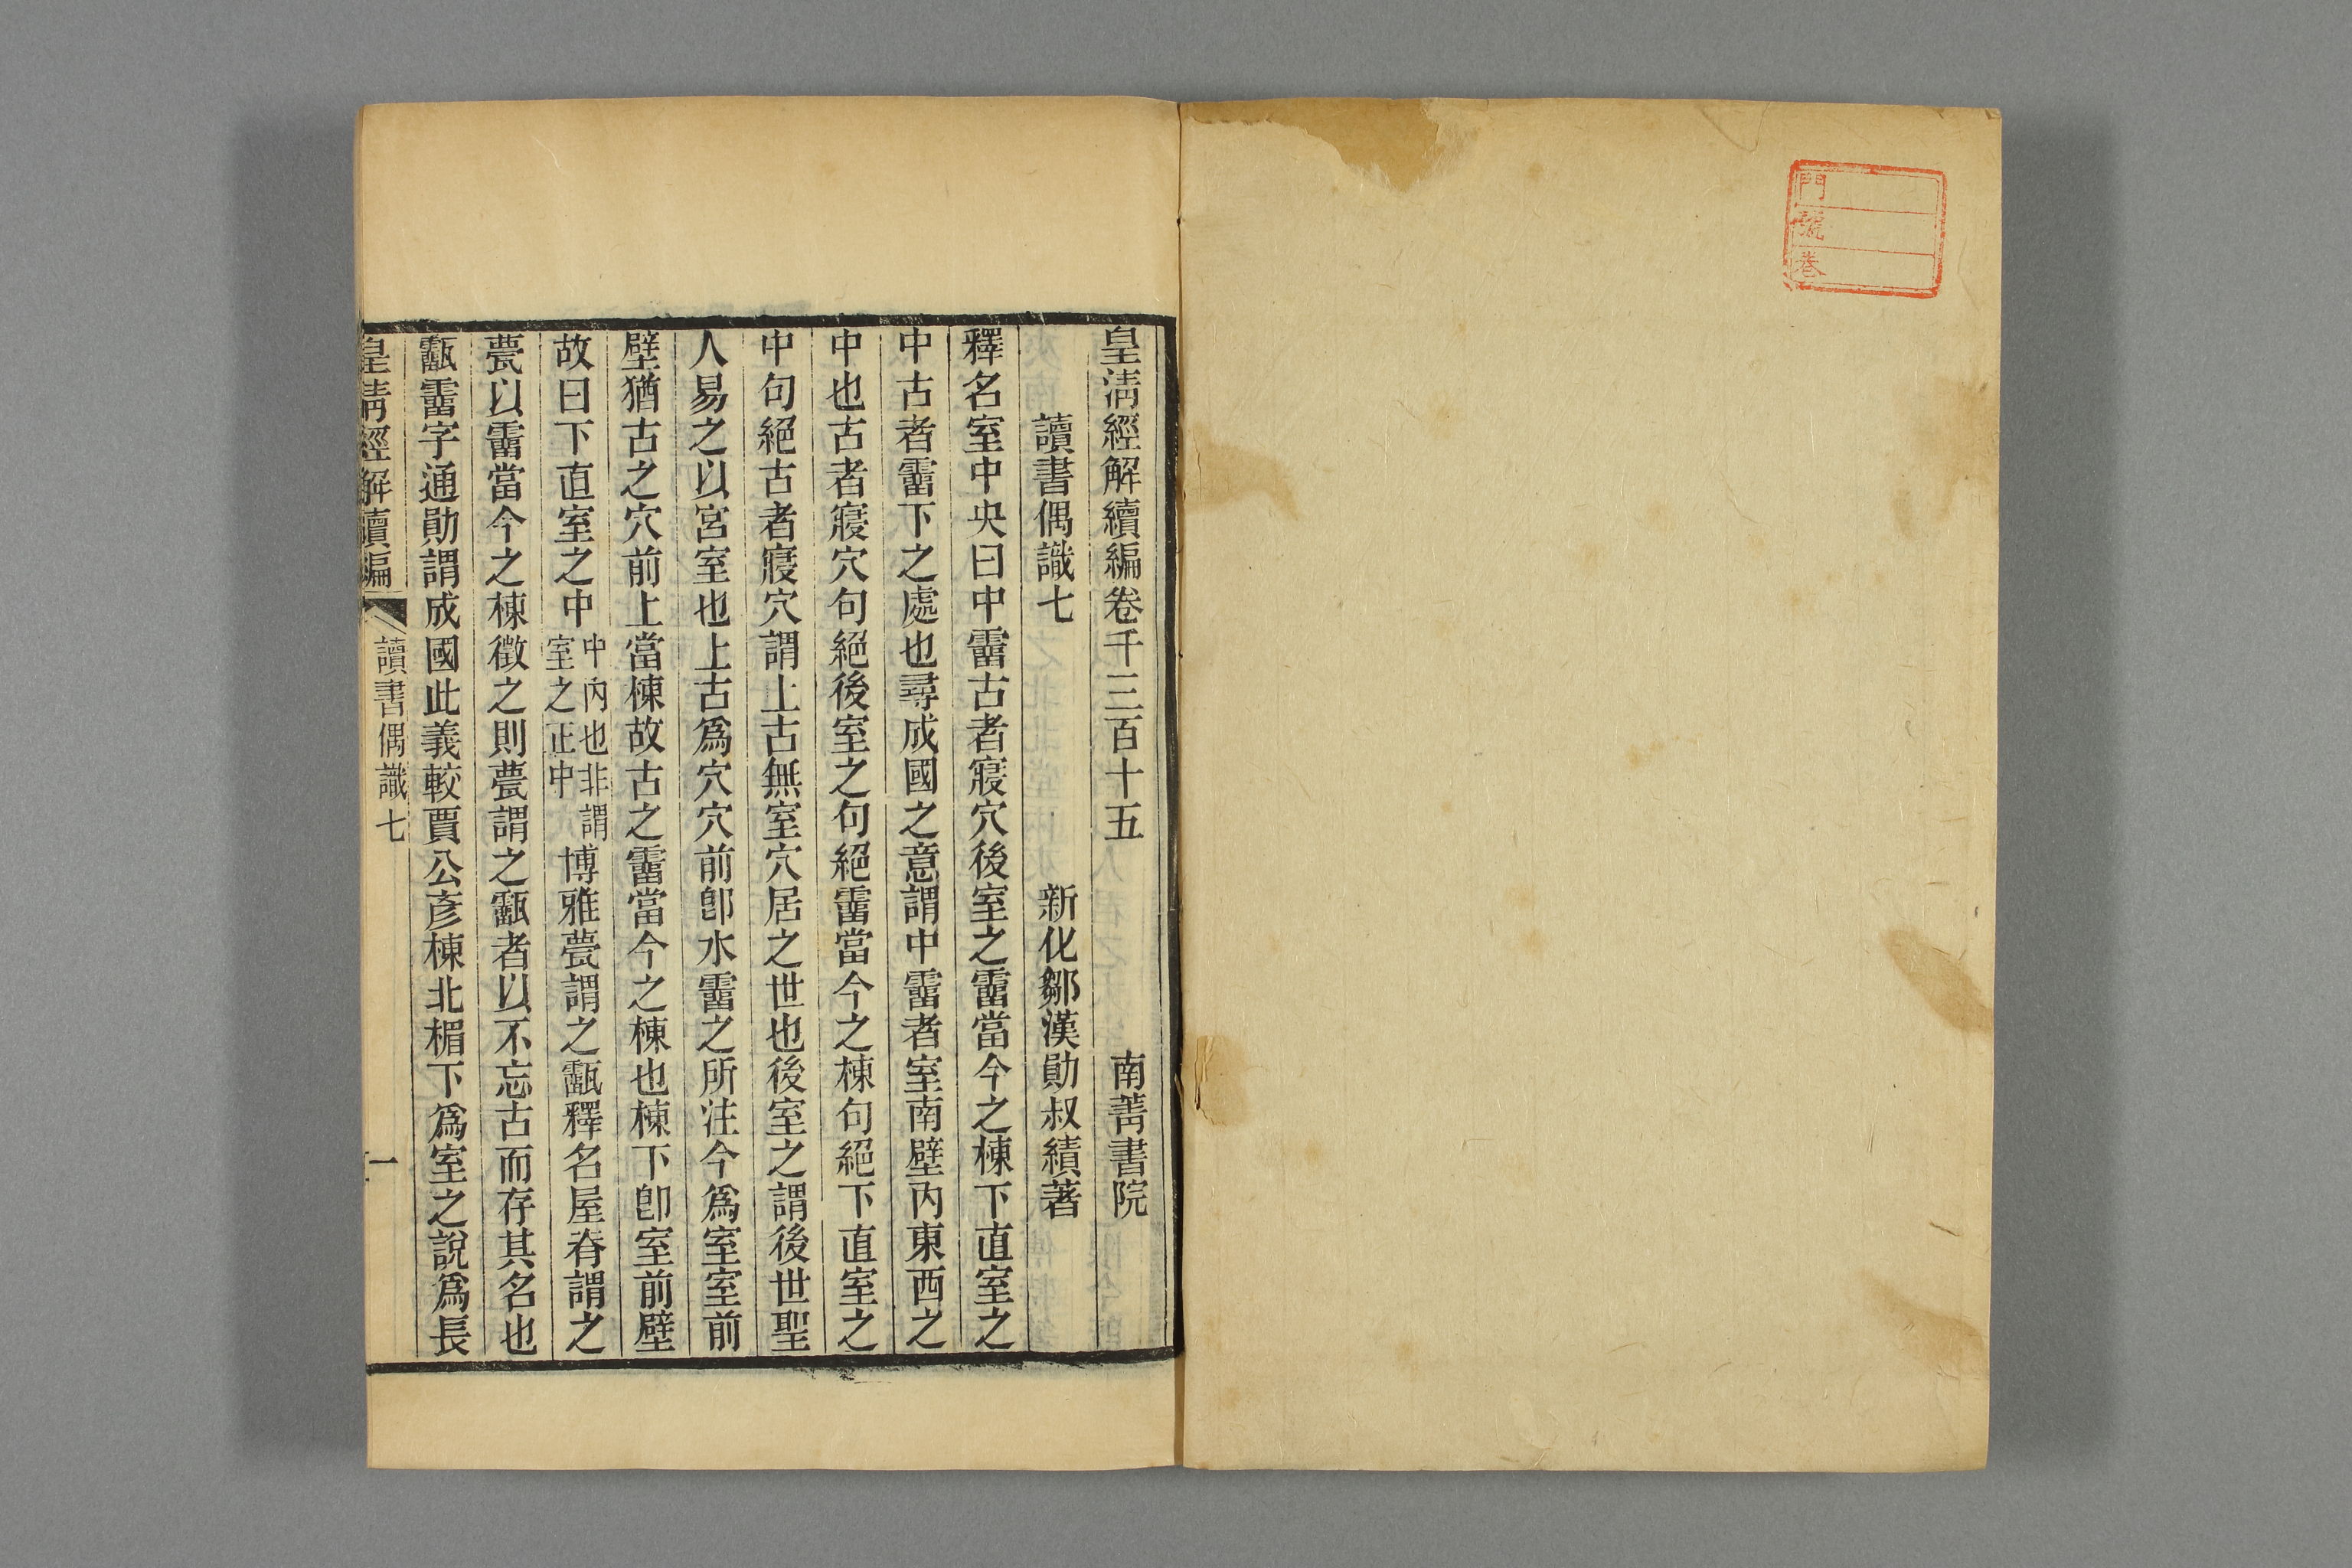 門
號
卷
皇淸經解續編卷千三百十五　南菁書院
讀書偶識七　新化鄒漢勛叔績著
釋名室中央曰中霤古者寢穴後室之霤當今之棟下直室之
中古者霤下之處也尋成國之意謂中霤者室南壁內東西之
中也古者寢穴句絕後室之句絕霤當今之棟句絕下直室之
中句絕古者寢穴謂上古無室穴居之世也後室之謂後世聖
人易之以宮室也上古爲穴穴前卽水霤之所注今爲室室前
壁猶古之穴前上當棟故古之霤當今之棟也棟下卽室前壁
故曰下直室之中中內也非謂室之正中博雅甍謂之甂釋名屋脊謂之
甍以霤當今之棟徵之則甍謂之甂者以不忘古而存其名也
甂霤字通勛謂成國此義較賈公彥棟北楣下爲室之說爲長
皇淸經解續編　讀書偶識七　一